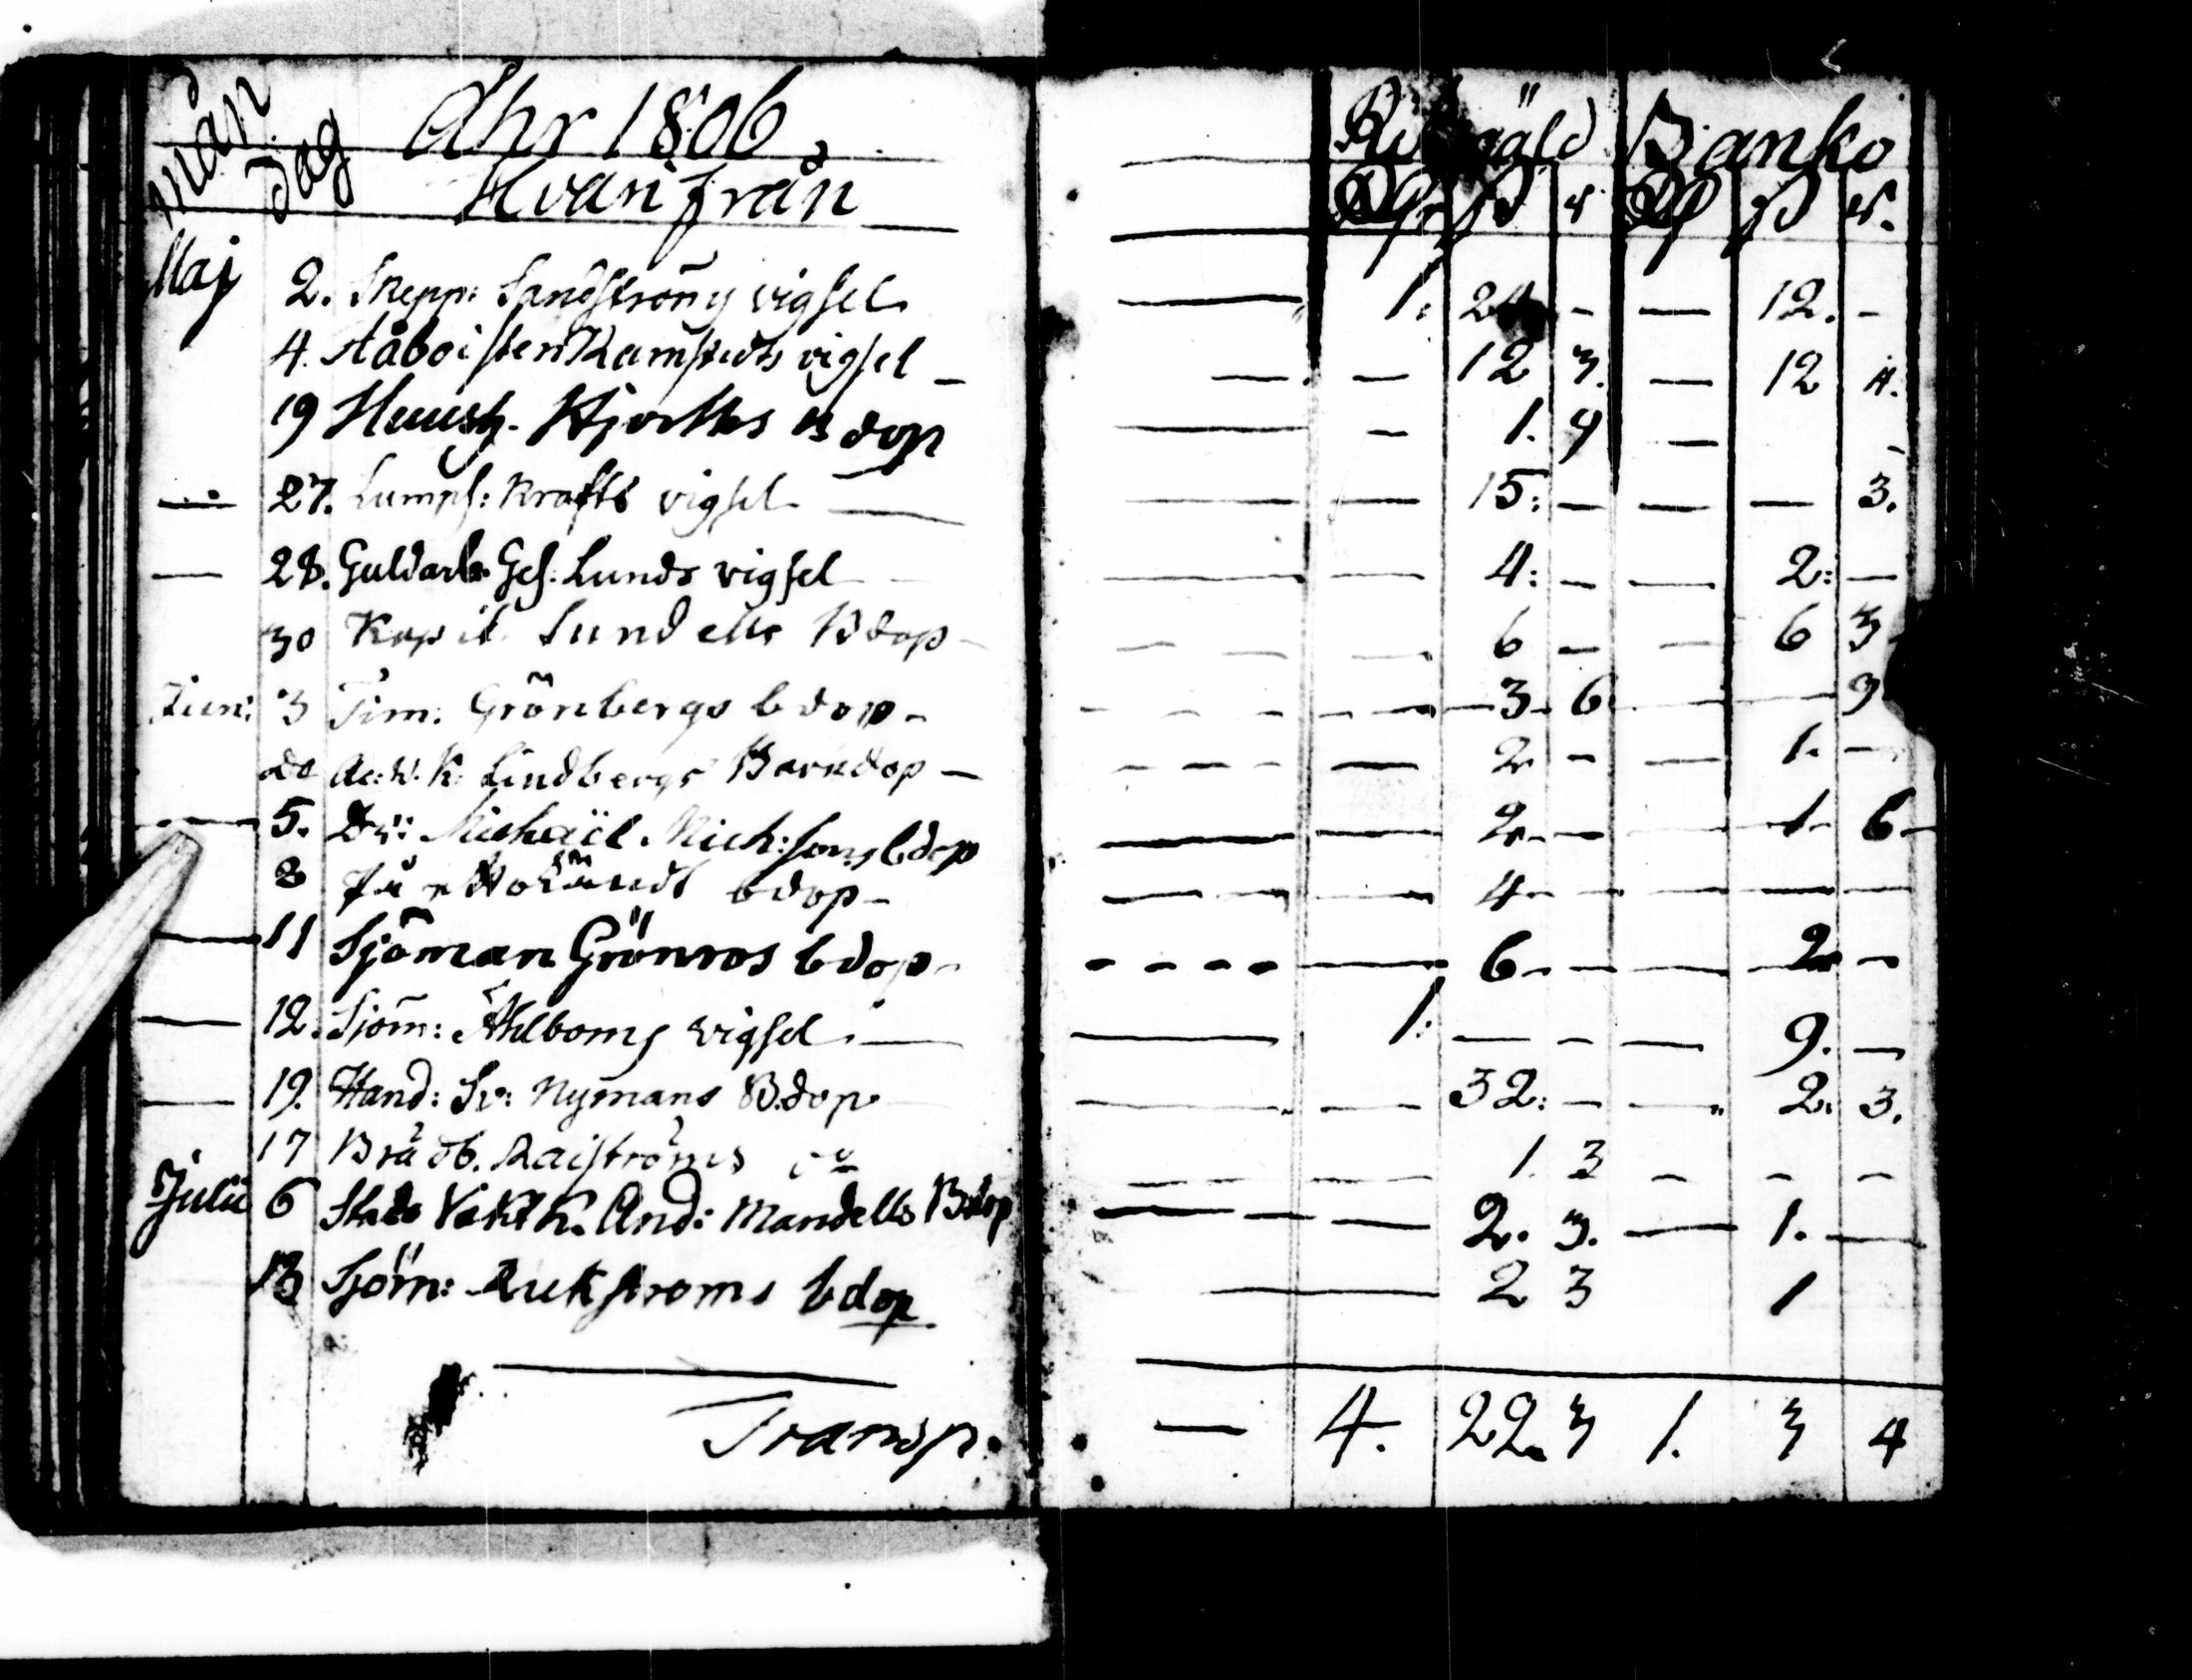 mån dag Åhr 1806. Riksgäld Banko
Hvarifrån Rdr ß r Rdr ß r.
Maj 2. Skepp: Sandströms vigsel 1: 24 - — 12. -
4. Råboisten Ramstedts vigsel — — 12 3. — 12 4.
19 Hjorths B dop — - 1. 9 — -
— 27. Lumpf: Krafts vigsel — — — 15: — — — 3.
— 28. Guldarb. Ges: Lunds vigsel — — 4: - — 2: —
30 Kapit Sundells Bdop - — 6 — — 6 3
Juni 3 Tim: Grönbergs bdop - — 3 6 — 9
do Ac: W. K: Lindbergs Barndop — — 2 - — 1. —
— 5. Dr: Michaël Mich:sons bdop — — 2 — — 1 6
8 bdop - — 4 - — — —
— 11 Sjöman Grönros bdop - — 6 - — — 2 —
— 12. Sjöm: Åhlboms vigsel — — 1: — - — 9. —
— 19. Hand: Sv: Nymans B.dop — — 32: - — 2: 3.
17 Brädb. Raiströms do — 1. 3 - - -
Julii 6 Stads Vakt K. And: Mandells Bdop — — 2. 3. — 1. —
13 Sjöm: Rukstroms bdop — 2 3 1
Transp. — 4. 22. 3 1. 3 4